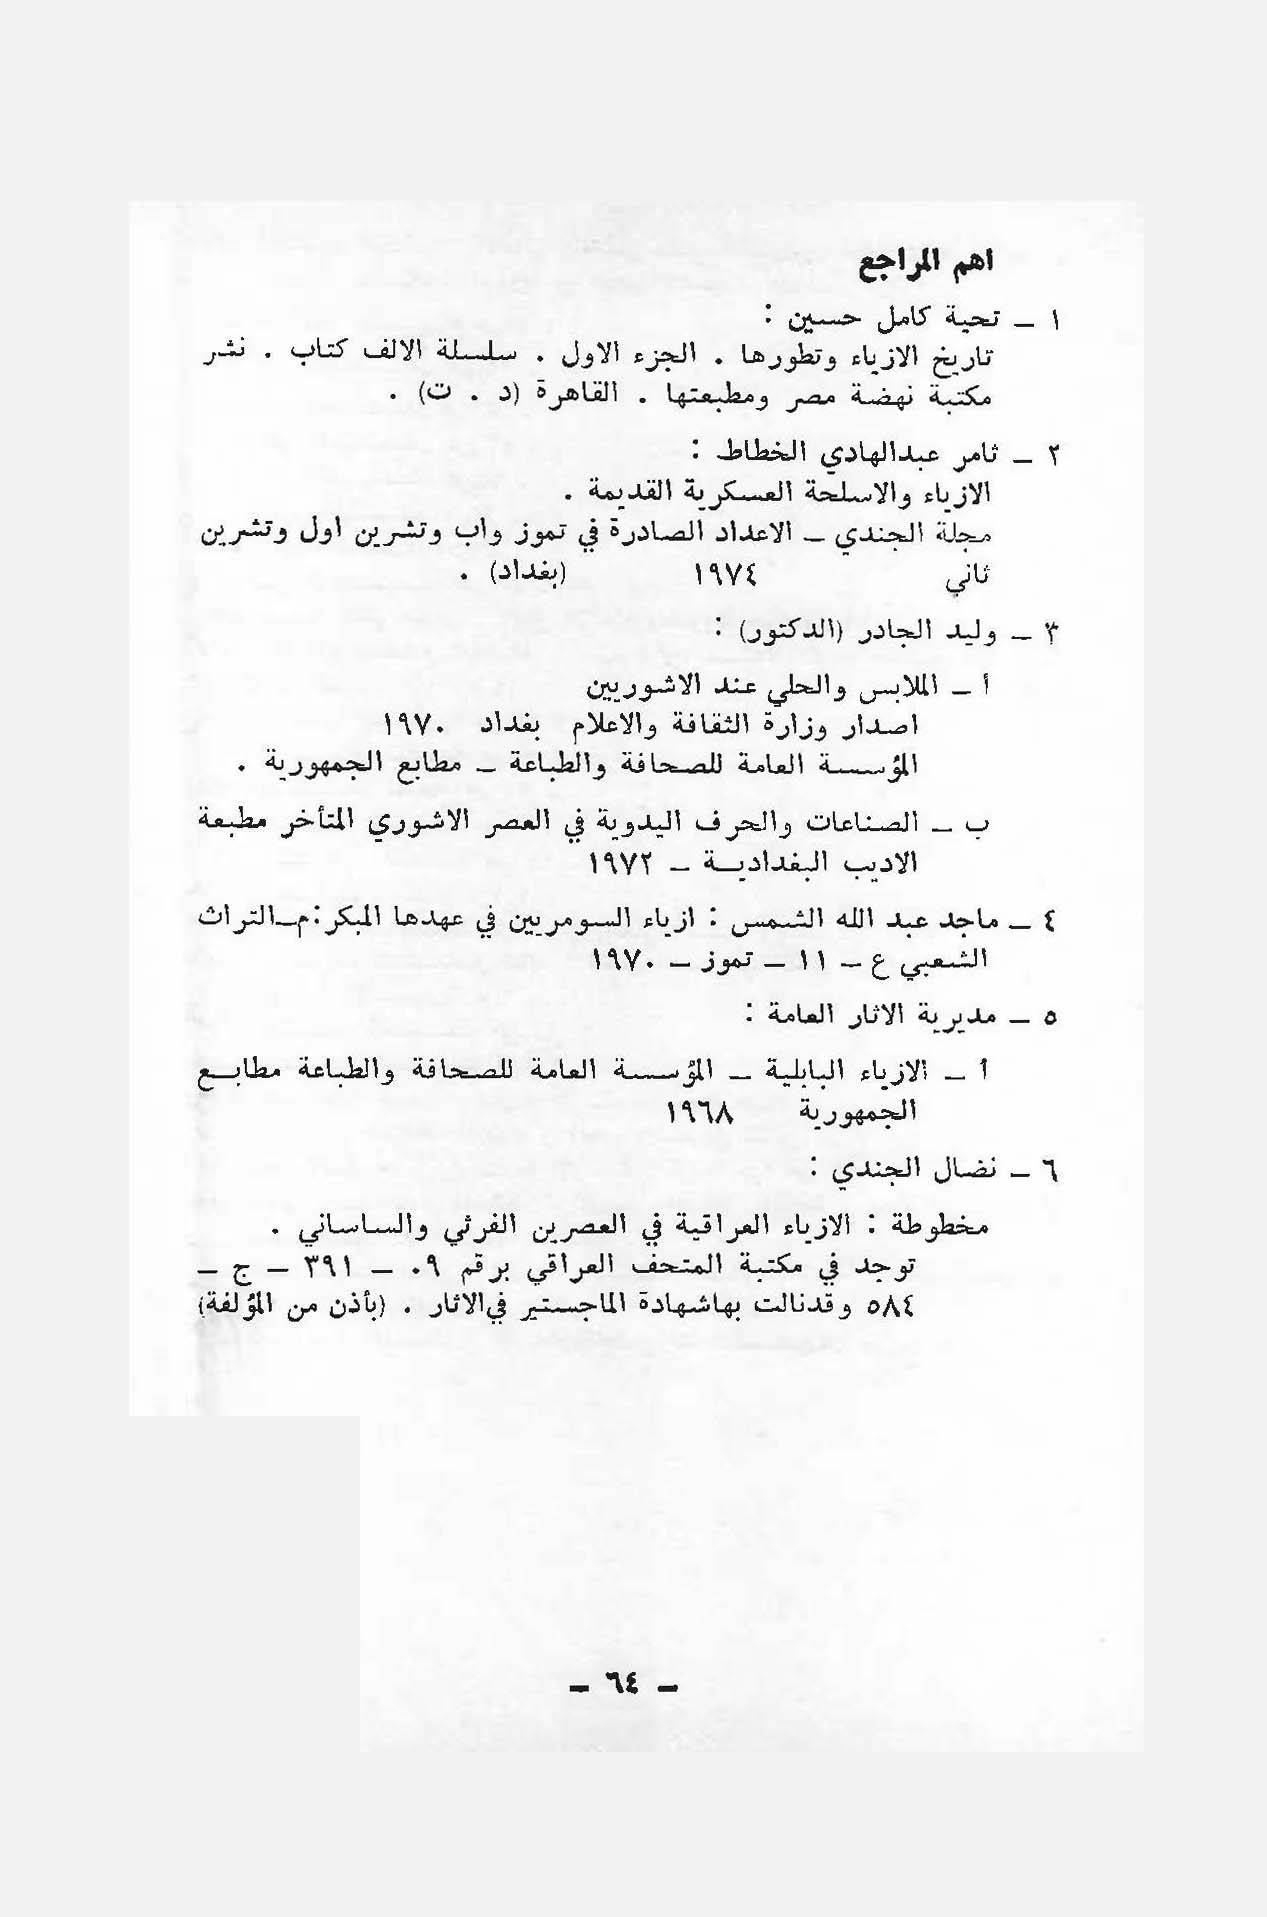 اهم المراجع
١ ــ تحية كامل حسين :
تاريخ الازياء وتطورها . الجزء الاول . سلسلة الالف كتاب . نشر
مكتبة نهضة مصر ومطبعتها . القاهرة (د . ت) .
٢ ــ ثامر عبدالهادي الخطاط :
الازياء والاسلحة العسكرية القديمة .
مجلة الجندي ــ الاعداد الصادرة في تموز واب وتشرين اول وتشرين
ثاني ١٩٧٤ (بغداد) .
٣ ــ وليد الجادر (الدكتور) :
أ ــ الملابس والحلي عند الاشوريين
اصدار وزارة الثقافة والاعلام بغداد ١٩٧٠
المؤسسة العامة للصحافة والطباعة ــ مطابع الجمهورية .
ب ــ الصناعات والحرف اليدوية في العصر الاشوري المتأخر مطبعة
الاديب البغدادية ــ ١٩٧٢
٤ ــ ماجد عبد الله الشمس : ازياء السومريين في عهدها المبكر:م_التراث
الشعبي ع ــ ١١ ــ تموز ــ ١٩٧٠
٥ ــ مديرية الاثار العامة :
أ ــ الازياء البابلية ــ المؤسسة العامة للصحافة والطباعة مطابع
الجمهورية ١٩٦٨
٦ ــ نضال الجندي :
مخطوطة : الازياء العراقية في العصرين الفرثي والساساني .
توجد في مكتبة المتحف العراقي برقم ٠٩ ــ ٣٩١ ــ ج ــ
٥٨٤ وقدنالت بهاشهادة الماجستير في الاثار . (بأذن من المؤلفة)
ــ ٦٤ ــ